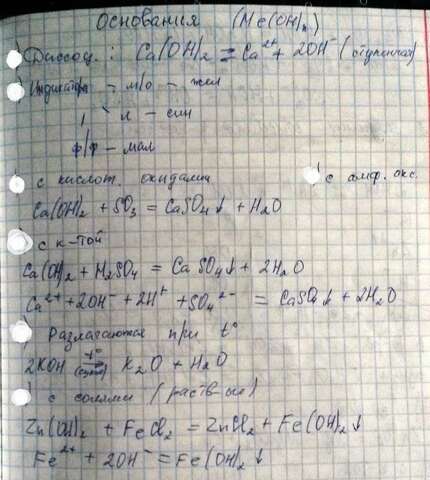 Основания (Me(OH)ₙ)
Диссоц.: Ca(OH)₂ ⇄ Ca²⁺ + 2OH⁻ (ступенчая)
Индикатора – м/о – жел
л – син
ф/ф – мал
с кислот. оксидами
с амф. окс.
Ca(OH)₂ + SO₃ = CaSO₄↓ + H₂O
с к-той
Ca(OH)₂ + H₂SO₄ = CaSO₄↓ + 2H₂O
Ca²⁺ + 2OH⁻ + 2H⁺ + SO₄²⁻ = CaSO₄↓ + 2H₂O
Разлагаются при t°
2KOH = K₂O + H₂O
t°
с солями (раств-ые)
Zn(OH)₂ + FeCl₂ = ZnCl₂ + Fe(OH)₂↓
Fe²⁺ + 2OH⁻ = Fe(OH)₂↓